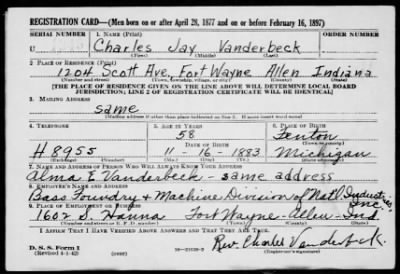 REGISTRATION CARD—(Men born on or after April 28, 1877 and on or before February 16, 1897)
SERIAL NUMBER 1. NAME (Print) ORDER NUMBER
U Charles Jay Vanderbeck
(First) (Middle) (Last)
2. PLACE OF RESIDENCE (Print)
1204 Scott Ave, Fort Wayne Allen Indiana
(Number and street) (Town, township, village, or city) (County) (State)
[THE PLACE OF RESIDENCE GIVEN ON THE LINE ABOVE WILL DETERMINE LOCAL BOARD
JURISDICTION; LINE 2 OF REGISTRATION CERTIFICATE WILL BE IDENTICAL]
3. MAILING ADDRESS
same
[Mailing address if other than place indicated on line 2. If same insert word same]
4. TELEPHONE 5. AGE IN YEARS 6. PLACE OF BIRTH
58 Fenton
DATE OF BIRTH (Town or county)
H 8955 11-16-1883 Michigan
(Exchange) (Number) (Mo.) (Day) (Yr.) (State or country)
7. NAME AND ADDRESS OF PERSON WHO WILL ALWAYS KNOW YOUR ADDRESS
Alma E Vanderbeck - same address
8. EMPLOYER'S NAME AND ADDRESS
Bass Foundry & Machine Division of Nat'l Industries, Inc
9. PLACE OF EMPLOYMENT OR BUSINESS
1602 S. Hanna Fort Wayne-Allen-Ind
(Number and street or R. F. D. number) (Town) (County) (State)
I AFFIRM THAT I HAVE VERIFIED ABOVE ANSWERS AND THAT THEY ARE TRUE.
D. S. S. Form 1
(Revised 4-1-42) (over) 16-21630-2
Rev. Charles Vanderbeck.
(Registrant's signature)